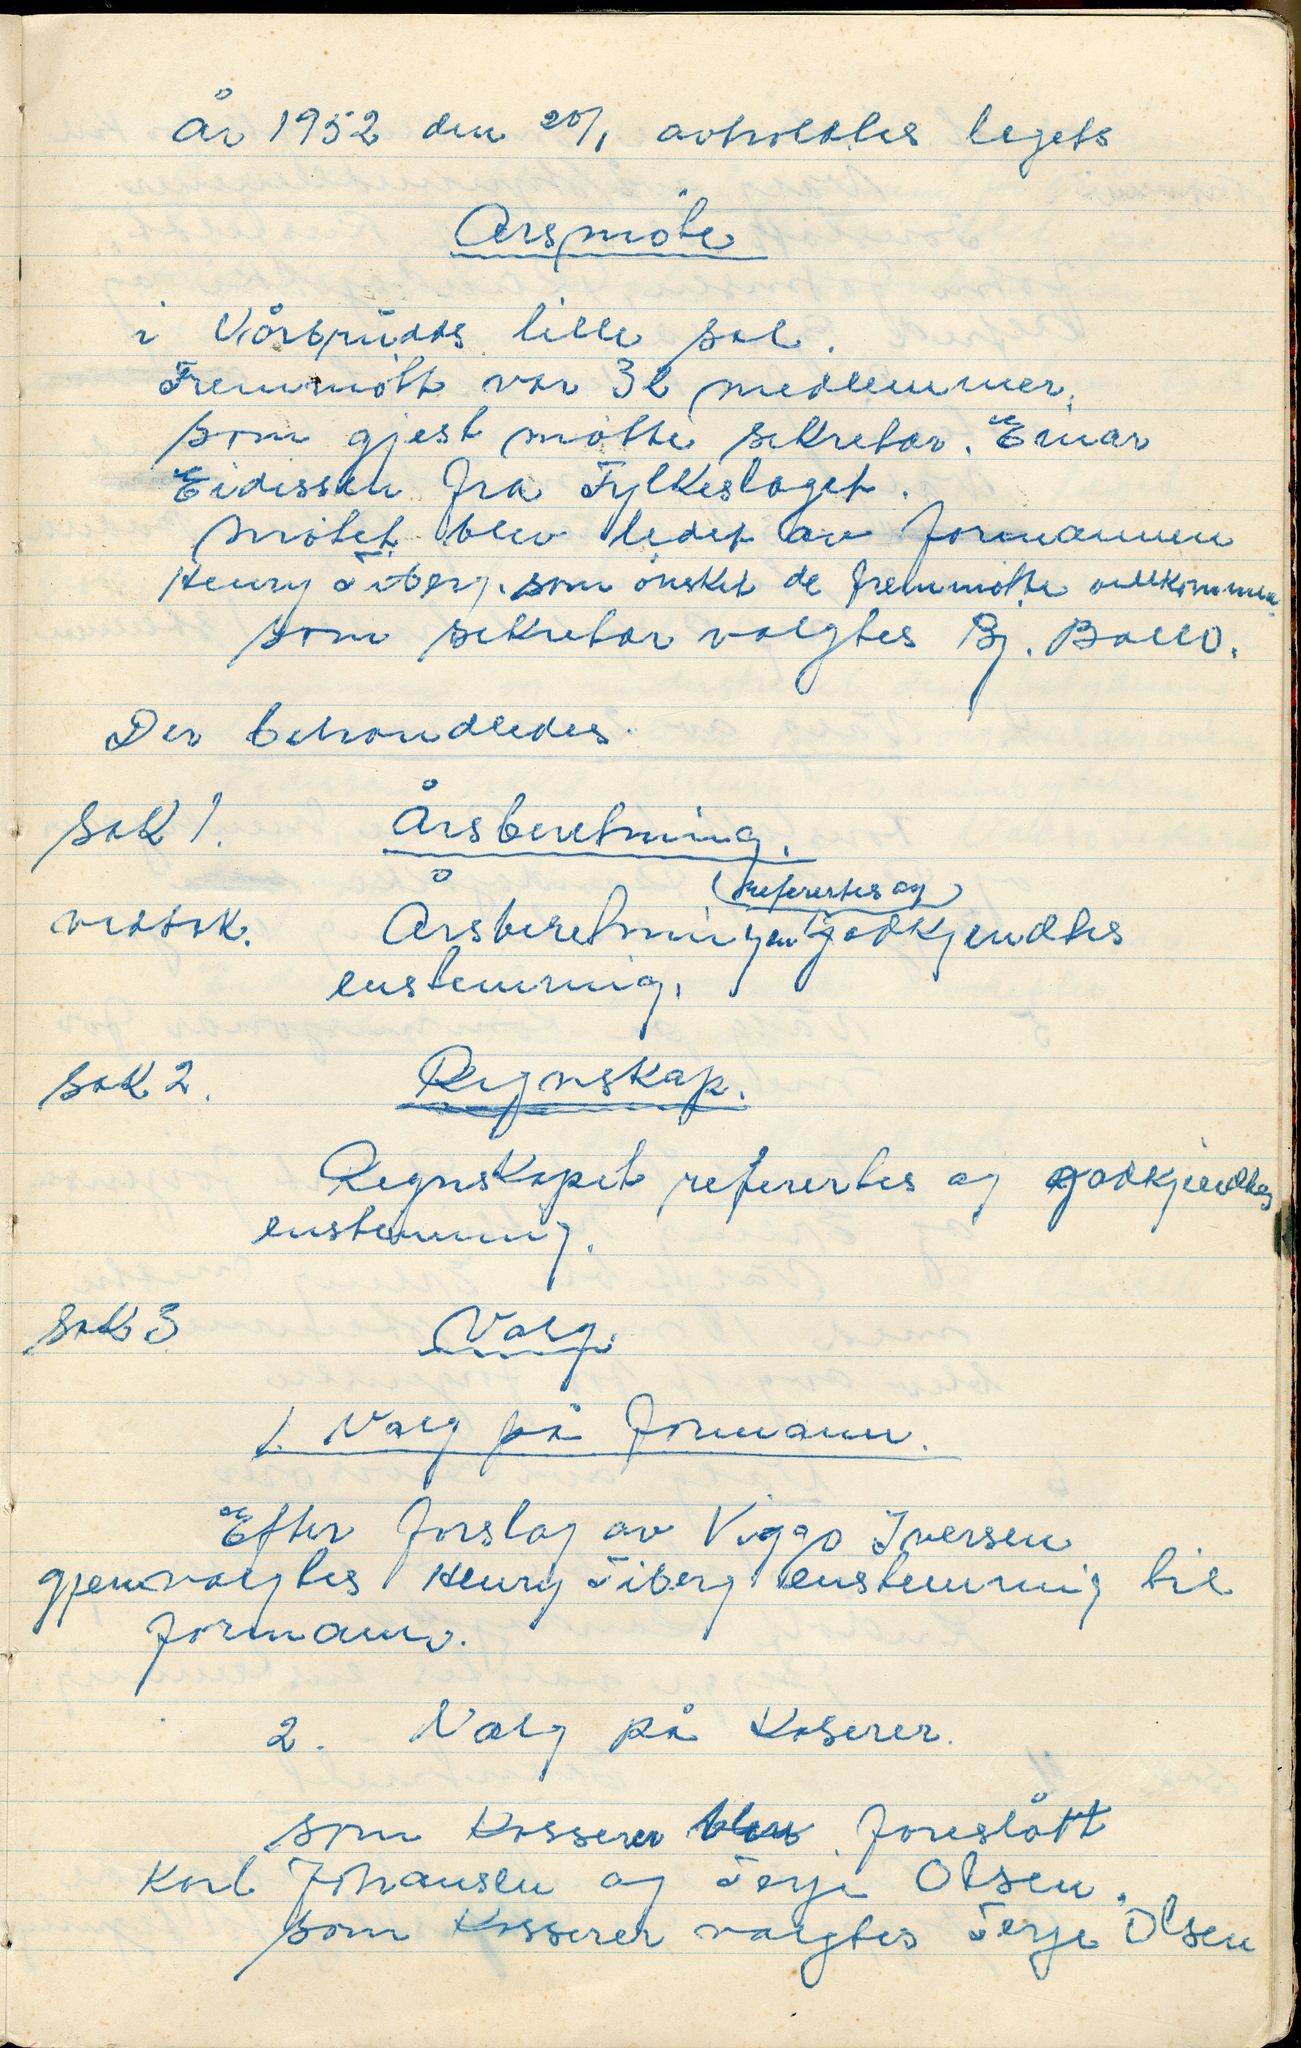 År 1952 den 20/1 avholdtes lagets
Årsmøte
i Vårbrudds lille sal.
Fremmøtt var 32 medlemmer.
som gjest møtte sekretær. Einar
Eidissen fra Fylkeslaget.
Møtet blev ledet av formannen
Henry Tiberg. som ønsket de fremmøtte velkommen.
som sekretær valgtes Bj.
Der behandledes.
Sak 1. Årsberetning.
vedtak. Årsberetningen (refererdes og) godkjendtes
enstemmig.
Sak 2. Regnskap.
Regnskapet referertes og godkjendtes
enstemmig.
Sak 3 Valg.
1. Valg på formann.
Efter forslag av Viggo Iversen
gjenvalgtes Henry Tiberg enstemmig til
formann.
2. Valg på Kaserer.
som Kasserer blev foreslått
Karl Johansen og Terje Olsen.
som Kasserer valgtes Terje Olsen